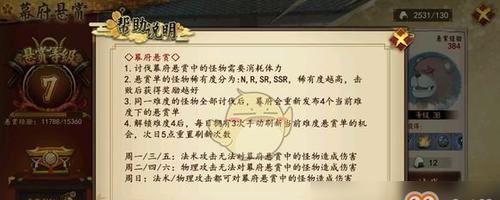 幕府悬赏
帮助说明
2531/130
悬赏等级
7
悬赏经验：11788/15360
◇幕府悬赏◇
1.讨伐幕府悬赏中的怪物需要消耗体力
2.悬赏单的怪物稀有度分为：N,R,SR,SSR，稀有度越高，击
败后获得奖励越好
3.同一难度的怪物全部讨伐后，幕府会重新发布4个当前难
度下的悬赏单
4.解锁难度4后，每日拥有3次手动刷新当前难度悬赏单的机
会，次日5点重置刷新次数
周一/三/五：法术攻击无法对幕府悬赏中的怪物造成伤害
周二/四/六：物理攻击无法对幕府悬赏中的怪物造成伤害
周日：法术/物理攻击都可对幕府悬赏中的怪物造成伤害
悬赏经验
384
等级：38
12